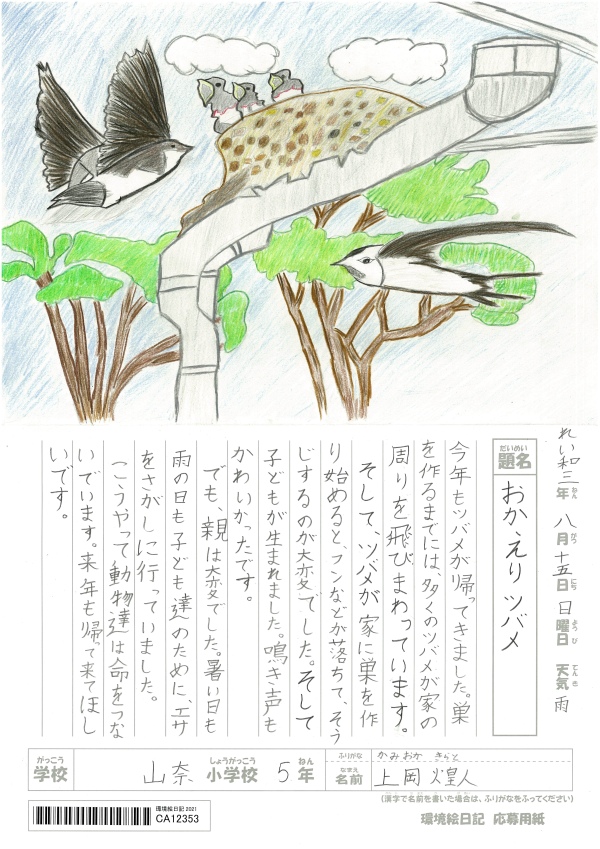 れい和三年 八月十五日 日曜日 天気 雨
ねん がつ にち ようび てんき
だいめい
題名
おかえりツバメ
今年もツバメが帰ってきました。巣
を作るまでには、多くのツバメが家の
周りを飛びまわっています。
そして、ツバメが家に巣を作
り始めると、フンなどが落ちて、そう
じするのが大変でした。そして
子どもが生まれました。鳴き声も
かわいかったです。
でも、親は大変でした。暑い日も
雨の日も子ども達のために、エサ
をさがしに行っていました。
こうやって動物達は命をつな
いでいます。来年も帰って来てほし
いです。
がっこう しょうがっこう ねん
学校 山奈 小学校 5年
ふりがな かみおか きらと
なまえ
名前 上岡 煌人
(漢字で名前を書いた場合は、ふりがなをふってください)
環境絵日記 2021
CA12353
環境絵日記 応募用紙